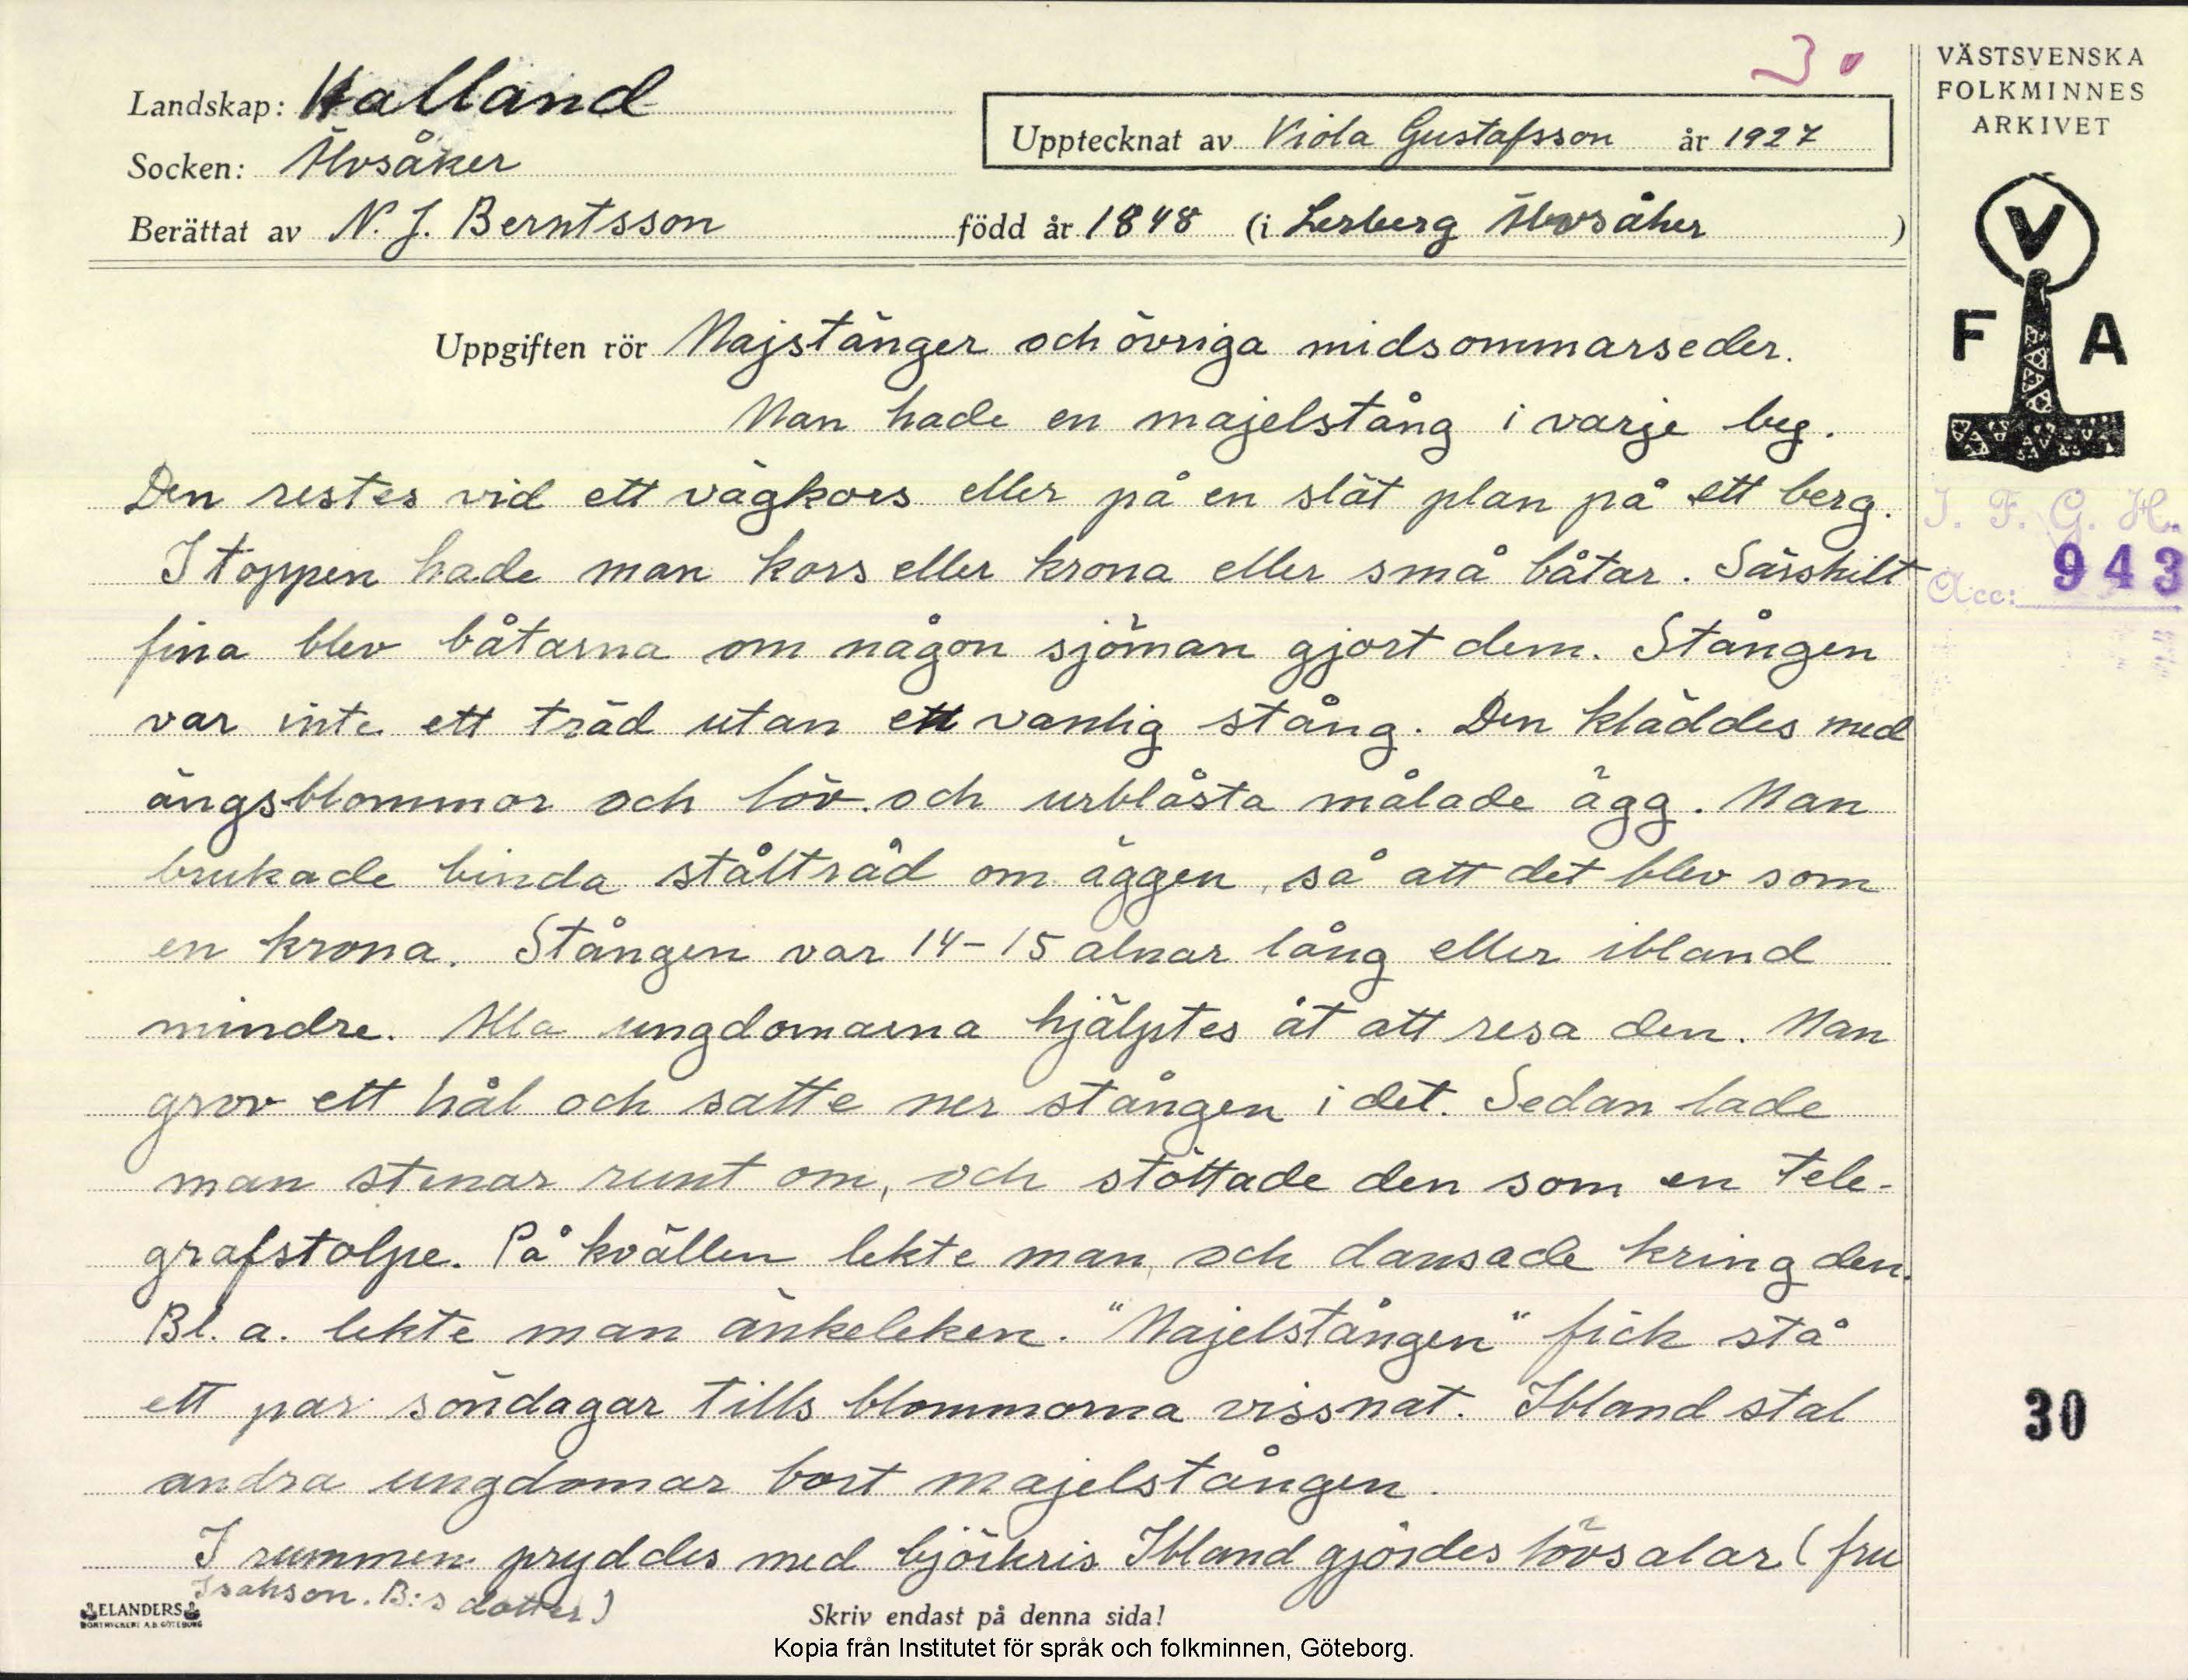 30
Landskap: Halland
Socken: Älvsåker
Berättat av N. J. Berntsson född år 1848 (i Lerberg Älvsåker )
Upptecknat av Viola Gustafsson år 1927
Uppgiften rör Majstänger och övriga midsommarseder.
Man hade en majelstång i varje by.
Den restes vid ett vägkors eller på en slät plan på ett berg.
I toppen hade man kors eller krona eller små båtar. Särskilt
fina blev båtarna om någon sjöman gjort dem. Stången
var inte ett träd utan ett vanlig stång. Den kläddes med
ängsblommor och löv. och urblåsta målade ägg. Man
brukade binda ståltråd om äggen, så att det blev som
en krona. Stången var 14-15 alnar lång eller ibland
mindre. Alla ungdomarna hjälptes åt att resa den. Man
grov ett hål och satte ner stången i det. Sedan lade
man stenar runt om, och stöttade den som en tele-
grafstolpe. På kvällen lekte man och dansade kring den.
Bl. a. lekte man änkeleken. "Majelstången" fick stå
ett par söndagar tills blommorna vissnat. Ibland stal
andra ungdomar bort majelstången.
I rummen pryddes med björkris Ibland gjordes lövsalar (fru
Isakson. B:s dotter)
ELANDERS
BOKTRYCKERI A.B. GÖTEBORG
Skriv endast på denna sida!
Kopia från Institutet för språk och folkminnen, Göteborg.
VÄSTSVENSKA
FOLKMINNES
ARKIVET
V
F A
I. F. G. H.
Acc: 943
30